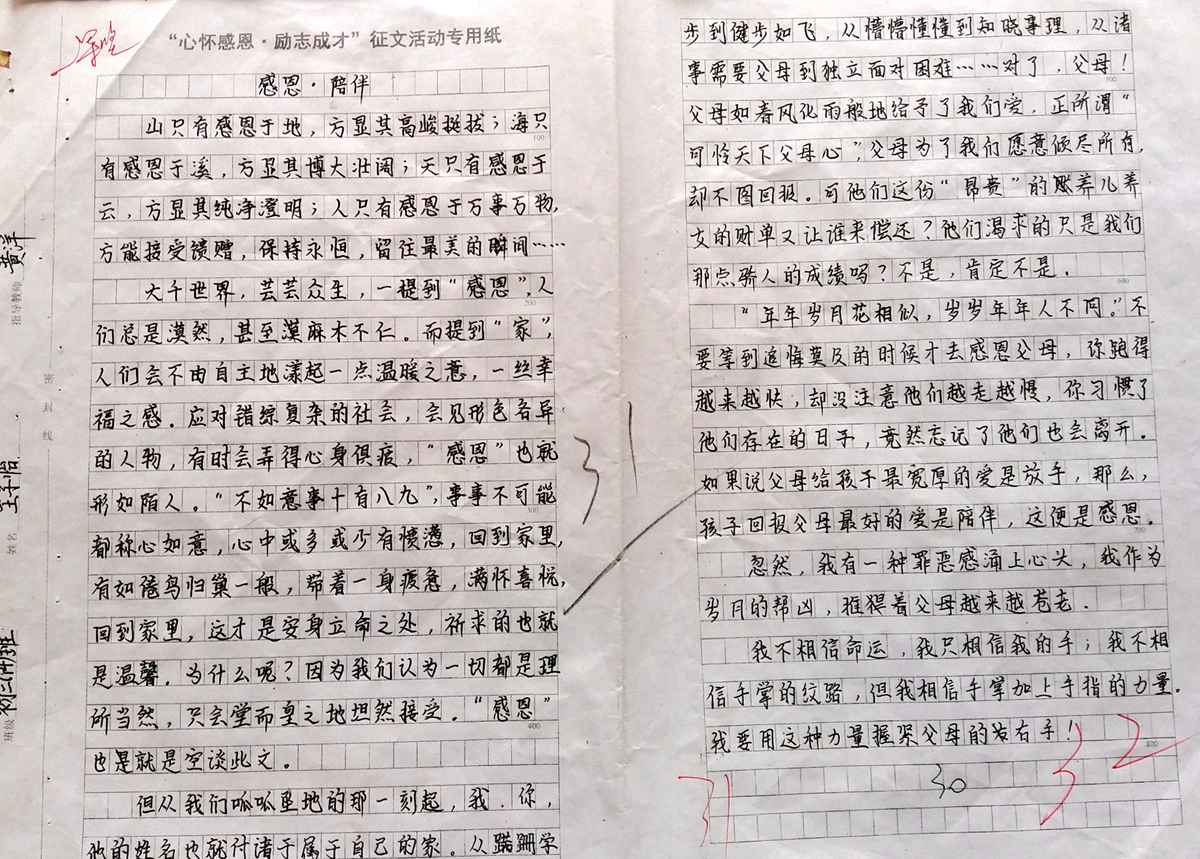 “心怀感恩·励志成才”征文活动专用纸
感恩·陪伴
山只有感恩于地，方显其高峻挺拔；海只
有感恩于溪，方显其博大壮阔；天只有感恩于
云，方显其纯净澄明；人只有感恩于万事万物，
方能接受馈赠，保持永恒，留住最美的瞬间……
大千世界，芸芸众生，一提到“感恩”，人
们总是漠然，甚至漠麻木不仁。而提到“家”，
人们会不由自主地漾起一点温暖之意，一丝幸
福之感。应对错综复杂的社会，会见形色各异
的人物，有时会弄得心身俱疲，“感恩”也就
形如陌人。“不如意事十有八九”，事事不可能
都称心如意，心中或多或少有愤懑，回到家里，
有如倦鸟归巢一般，带着一身疲惫，满怀喜悦，
回到家里，这才是安身立命之处，祈求的也就
是温馨。为什么呢？因为我们认为一切都是理
所当然，只会堂而皇之地坦然接受。“感恩”
也是就是空谈此文。
但从我们呱呱坠地的那一刻起，我．你，
他的姓名也就付诸于属于自己的家。从蹒跚学
步到健步如飞，从懵懵懂懂到知晓事理，从诸
事需要父母到独立面对困难……对了，父母！
父母如春风化雨般地给予了我们爱，正所谓“
可怜天下父母心”，父母为了我们愿意倾尽所有，
却不图回报。可他们这份“昂贵”的账养儿养
女的财单又让谁来偿还？他们渴求的只是我们
那点骄人的成绩吗？不是，肯定不是．
“年年岁月花相似，岁岁年年人不同。”不
要等到追悔莫及的时候才去感恩父母，你跑得
越来越快，却没注意他们越走越慢，你习惯了
他们存在的日子，竟然忘记了他们也会离开．
如果说父母给孩子最宽厚的爱是放手，那么，
孩子回报父母最好的爱是陪伴，这便是感恩。
忽然，我有一种罪恶感涌上心头，我作为
岁月的帮凶，推搡着父母越来越苍老．
我不相信命运，我只相信我的手；我不相
信手掌的纹路，但我相信手掌加上手指的力量．
我要用这种力量握紧父母的发右手！
31
30
32
31
100
200
300
400
500
600
700
800
指导教师
黄洋
密封线
姓名
班级